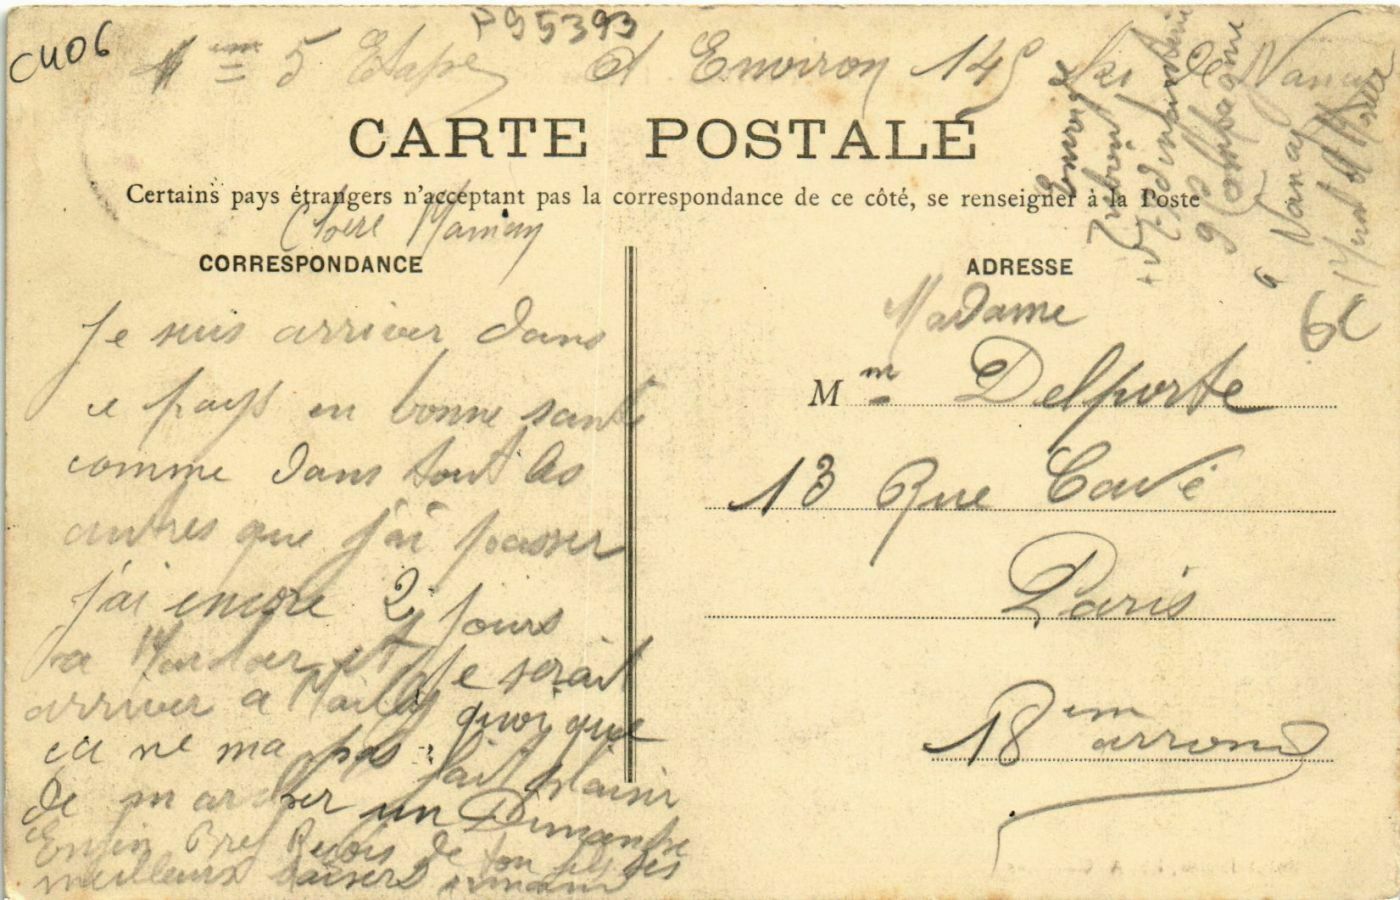 CU06
P95393
5 Etape et Environ 145 de Nancy
CARTE POSTALE
Certains pays étrangers n'acceptant pas la correspondance de ce côté, se renseigner à la Poste
Chère Maman
CORRESPONDANCE
Je suis arriver dans
ce pays en bonne santé
comme dans tout les
autres que j'ai passer
j'ai encore 2 jours
a Marcher et Je serait
arriver a Mailly quoi que
ca ne ma pas fait plaisir
De marcher un Dimanche
Enfin Bref Reçois de ton fils ses
meilleurs baisers
ADRESSE
Madame
Mm Delporte
13 Rue Cavé
Paris
18em arrond
Envoi de
d'infanterie
9 Compagnie
Nancy
6c